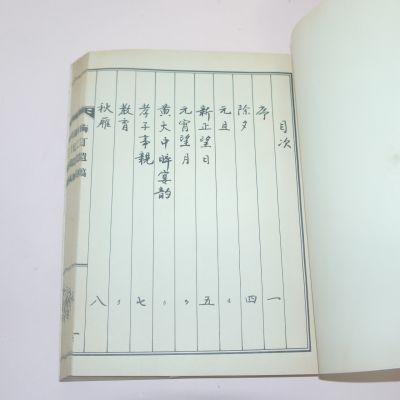 目次
序 一
除夕 四
元旦 〃
新正望日 五
元宵望月 〃
黄大中晬宴韵 〃
孝子事親 七
教育 〃
秋雁 八
梅訂遺稿